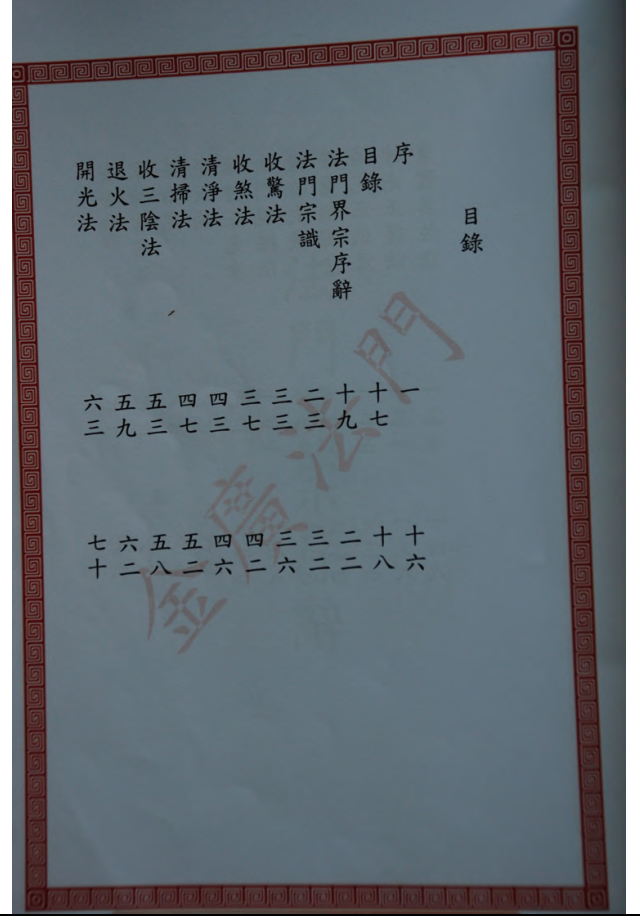 目錄
序 一 十六
目錄 十七 十八
法門界宗序辭 十九 二二
法門宗識 二三 三二
收驚法 三三 三六
收煞法 三七 四二
清淨法 四三 四六
清掃法 四七 五二
收三陰法 五三 五八
退火法 五九 六二
開光法 六三 七十
金廣法門